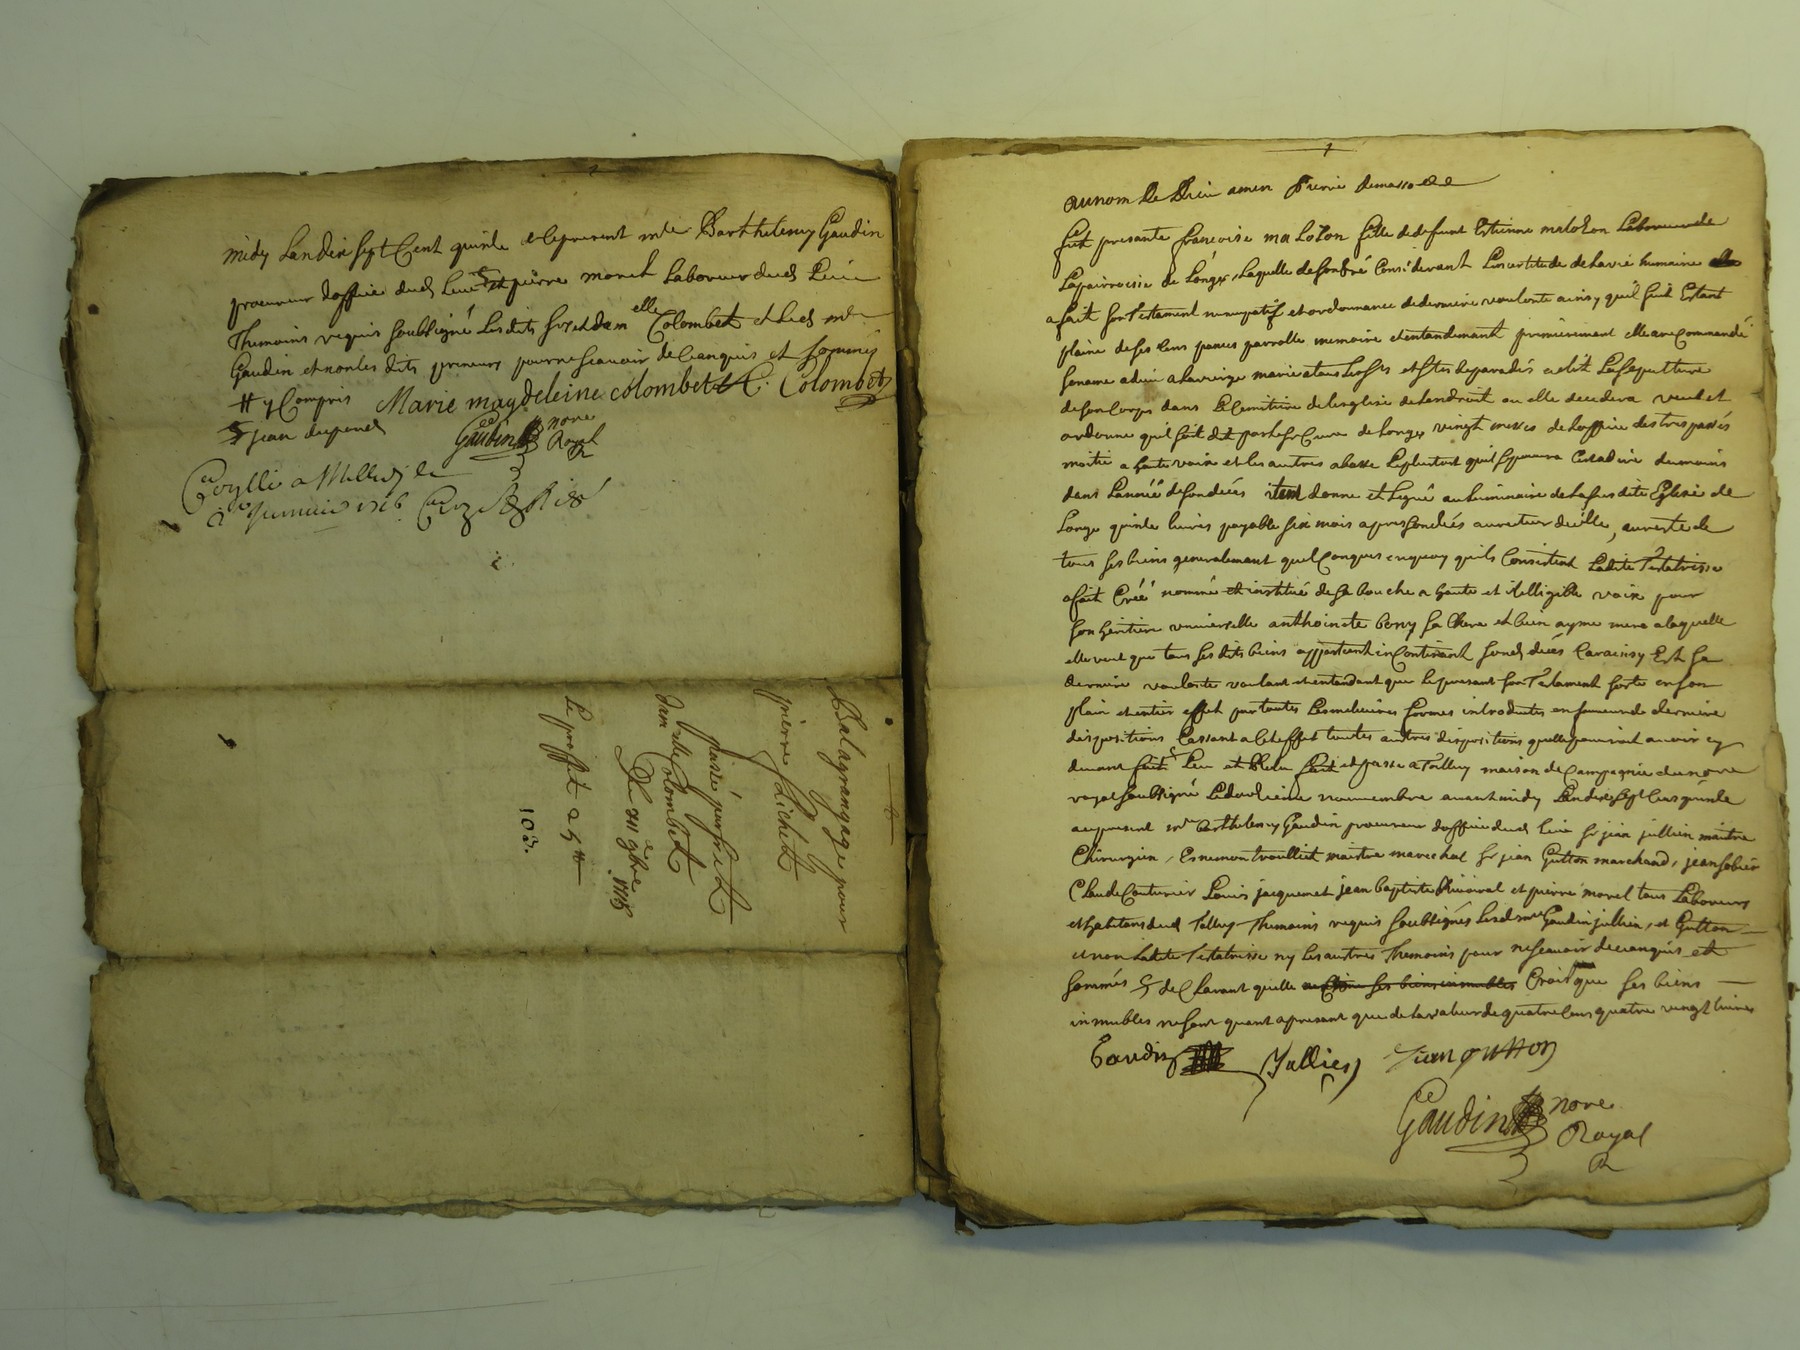 midy Landix sept Cent quinse et le present mtre Barthelemy Gaudin
procureur doffice dud Lieu et pierre morel Laboureur dud Lieu
Themoins requis soubsigné Lesdits sr et dam elle Colombet et led mtre
Gaudin et non les dits preneurs pour ne scavoir de ce enquis et sommés
# y Compris Marie magdeleine colombet C. Colombet
§ jean dupond Gaudin nore
Royal
Conrollé a Millery le
Janvier 1716
Balagrangage pour
pierre Pichett
passé par sr et
dam elle Colombet
Du 9bre 1715
103.
au nom de Dieu amen
fut presante francoise malozon fille de defunt Estienne malozon Laboureur de
La parroisse de Longes, Laquelle de son gré Considerant Lincertitude de la vie humaine
a fait son Testament nuncupatif et ordonnance de derniere voulonte ainsy quil suit Estant
plaine de ses sens parolle memoire et entandemant premierement elle a recommandé
son ame a dieu a la vierge marie a tous les sts et stes du paradis a elit La sepulture
de son Corps dans Le Cemitiere de leglise de Landroit ou elle decedera veut et
ordonne quil soit dit par le sr Cure de Longes vingt messes de loffice des trespassés
moitie a haute voix et les autres a basse Le plustost quil se pourra Cestadire du moins
dans Lannéé de son decés item donne et Legue au luminaire de la susdite Eglise de
Longes quinse livres payable six mois apres son decés au recteur dicelle, au reste de
tous ses biens generalement quelConques en quoy quils Consistent Ladite Testatrisse
a fait Créé nommé et institué de sa bouche a haute et intelligible voix pour
son heritiere universelle anthoinete bony sa Chere et bien aymé mere a laquelle
elle veut que tous ses dits biens appartient inContinant son d decés Car ainsy Est sa
derniere voulonte voulant et entandant que le presant son Testament sorte en son
plain et entier effet par toutes Les meilieures formes introduites en faveur de derniere
dispositions Cassant a Cet effet toutes autres dispositions quelle pourroit avoir cy
devant fait § Leu et Relu fait et passé a Talluy maison de Campagnie du nore
royal soubsigné Le douzieme novembre avant midy Landixsept Cens quinse
au present mtre Barthelemy Gaudin procureur doffice dud Lieu sr jean jullien maitre
Chirurgien, Esnemon troulliet maistre marechal sr jean Gutton marchand, jean
Claude Couturier Louis jacquemet jean baptiste et pierre morel tous Laboureurs
et habitans dud Talluy Themoins requis soubsignés Lesd mtre Gaudin jullien, et Gutton
et non Ladite Testatrisse ny Les autres Themoins pour ne scavoir de ce enquis et
sommés § de Clarant quelle Croit que ses biens
inmubles ne sont quant a presant que de la valeur de quatre Cens quatre vingt livres
Gaudin Jullien Jean gutton
Gaudin nore
Royal